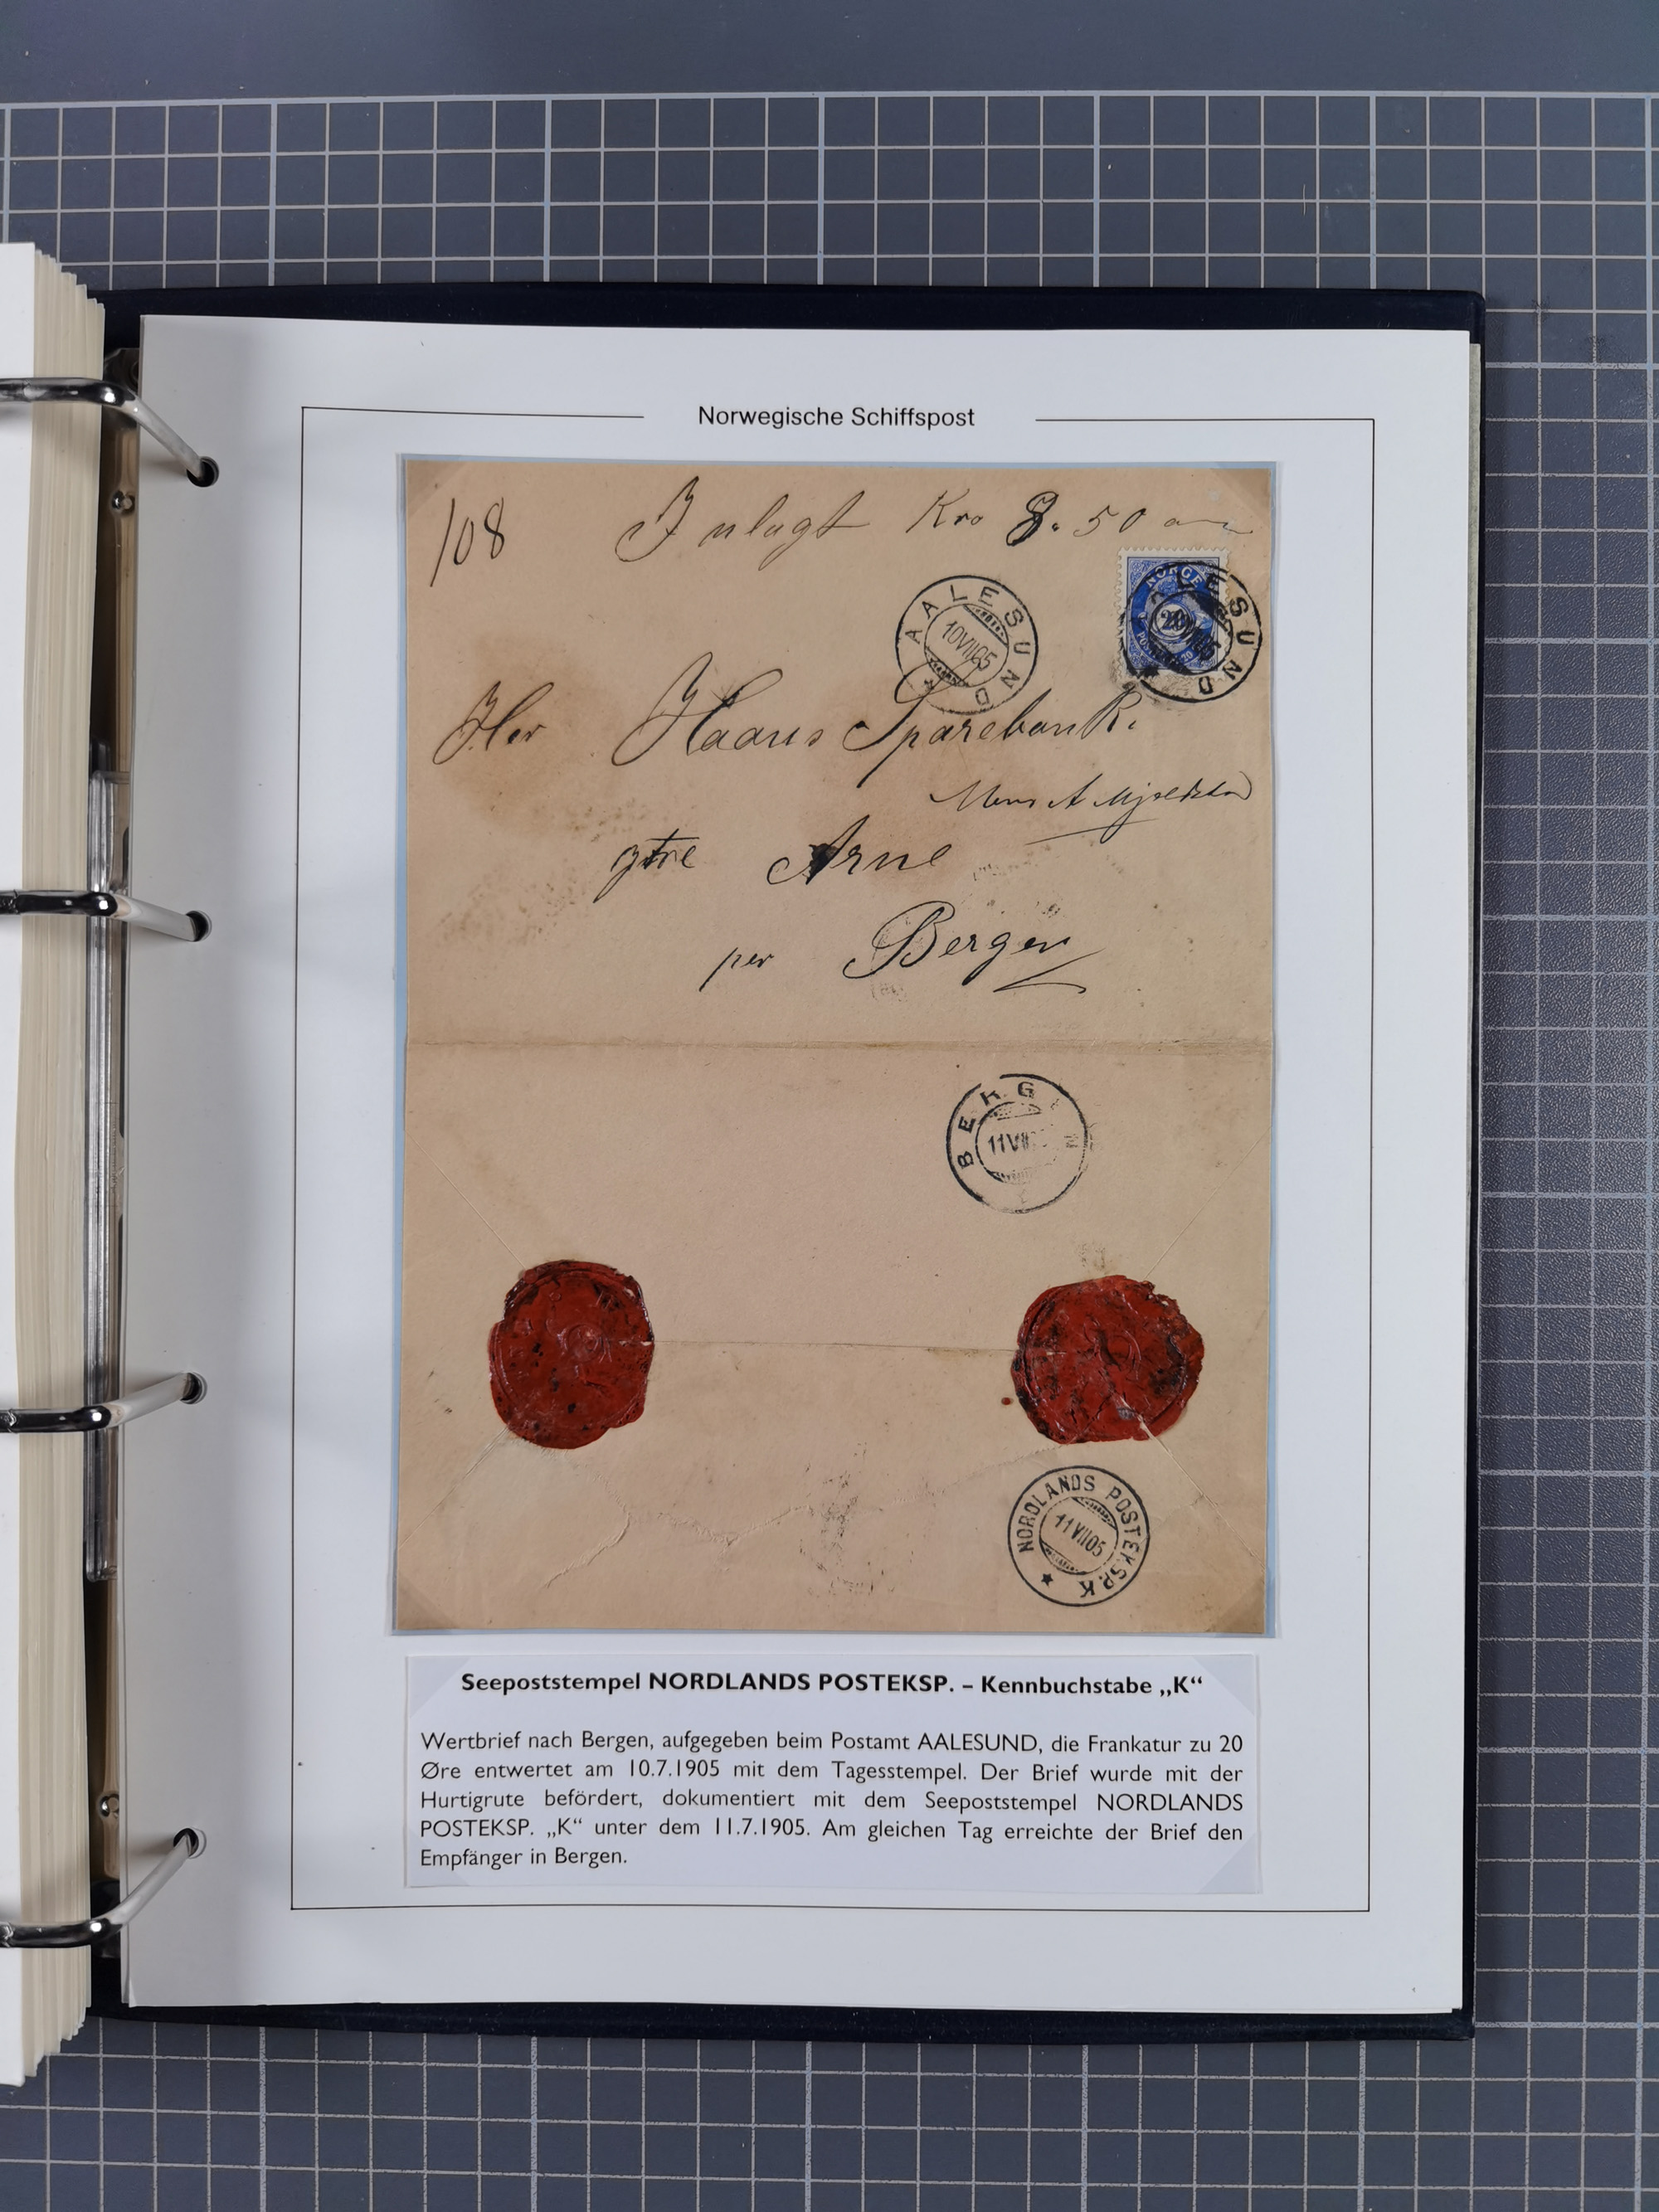 Norwegische Schiffspost
108 Inlagt Kro 8. 50
NORGE
20
AALESUND
10 VII 05
AALESUND
Her Haaus Sparebank.
Arne
per Bergen
BERGEN
11 VII
NORDLANDS POSTEKSP. K
11 VII 05
Seepoststempel NORDLANDS POSTEKSP. – Kennbuchstabe „K“
Wertbrief nach Bergen, aufgegeben beim Postamt AALESUND, die Frankatur zu 20
Øre entwertet am 10.7.1905 mit dem Tagesstempel. Der Brief wurde mit der
Hurtigrute befördert, dokumentiert mit dem Seepoststempel NORDLANDS
POSTEKSP. „K“ unter dem 11.7.1905. Am gleichen Tag erreichte der Brief den
Empfänger in Bergen.